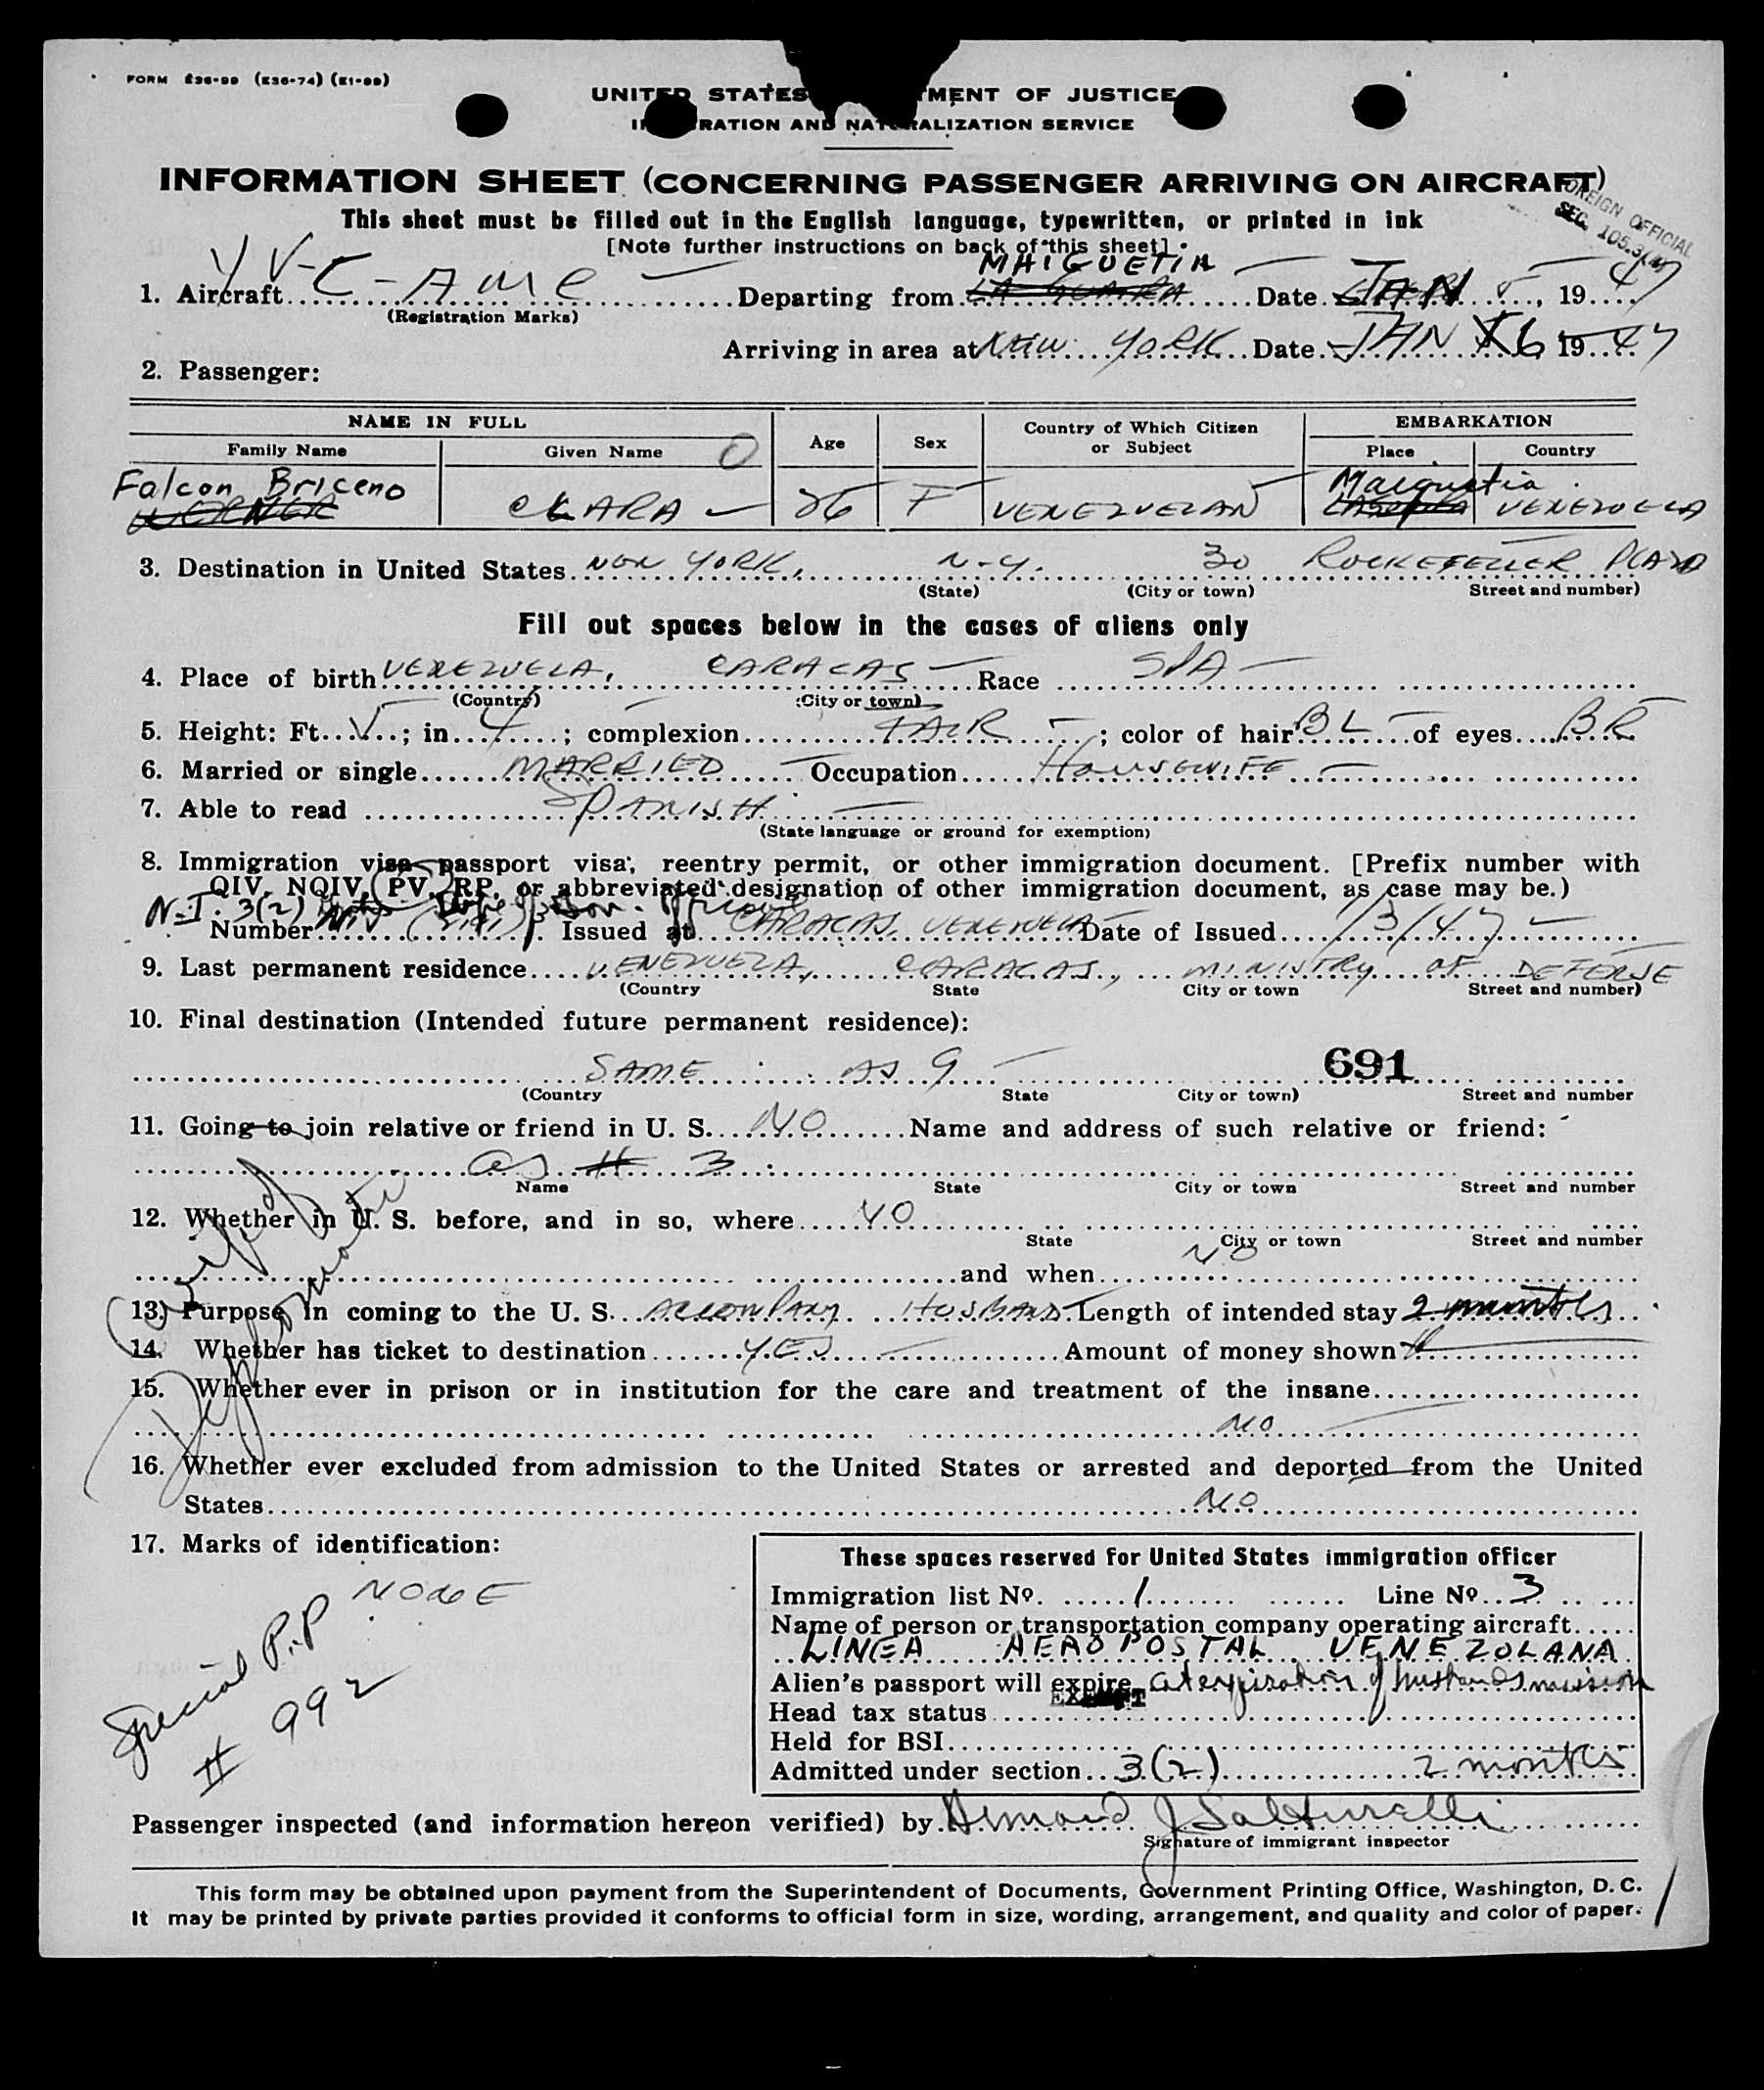 FORM (E36-74) (E1-99)
UNITED STATES MENT OF JUSTICE
RATION AND NATURALIZATION SERVICE
INFORMATION SHEET (CONCERNING PASSENGER ARRIVING ON AIRCRAFT)
This sheet must be filled out in the English language, typewritten, or printed in ink
[Note further instructions on back of this sheet]
FOREIGN OFFICIAL
SEC.
MAIGUETIA
1. Aircraft YV-C-AME Departing from LA GUAIRA Date JAN 5, 19 47
(Registration Marks)
Arriving in area at NEW YORK Date JAN 6 19 47
2. Passenger:
NAME IN FULL Age Sex Country of Which Citizen or Subject EMBARKATION
Family Name Given Name Place Country
Falcon Briceno Maiquetia
CLARA 26 F VENEZUELAN VENEZUELA
3. Destination in United States NEW YORK, N-Y. 30 ROCKEFELLER PLAZA
(State) (City or town) Street and number)
Fill out spaces below in the cases of aliens only
4. Place of birth VENEZUELA, CARACAS Race SPA
(Country) (City or town)
5. Height: Ft. 5; in. 4; complexion FAIR; color of hair BL of eyes BR
6. Married or single MARRIED Occupation HOUSEWIFE
7. Able to read SPANISH
(State language or ground for exemption)
8. Immigration visa passport visa, reentry permit, or other immigration document. [Prefix number with
QIV, NQIV, PV, RP, or abbreviated designation of other immigration document, as case may be.)
N-I. 3(2)
Number Issued at CARACAS, VENEZUELA Date of Issued 1/3/47
9. Last permanent residence VENEZUELA, CARACAS, MINISTRY OF DEFENSE
(Country State City or town Street and number)
10. Final destination (Intended future permanent residence):
SAME AS 9 691
(Country State City or town) Street and number
11. Going to join relative or friend in U. S. NO Name and address of such relative or friend:
as # 3
Name State City or town Street and number
12. Whether in U. S. before, and in so, where NO
State City or town Street and number
and when NO
13. Purpose in coming to the U. S. ACCOMPANY HUSBAND Length of intended stay 2 months
14. Whether has ticket to destination YES Amount of money shown
15. Whether ever in prison or in institution for the care and treatment of the insane
NO
16. Whether ever excluded from admission to the United States or arrested and deported from the United
States NO
17. Marks of identification:
NONE
Special P.P
# 992
These spaces reserved for United States immigration officer
Immigration list No. 1 Line No. 3
Name of person or transportation company operating aircraft
LINEA AEROPOSTAL VENEZOLANA
Alien's passport will expire at expiration of husbands mission
Head tax status
Held for BSI
Admitted under section 3(2) 2 months
Passenger inspected (and information hereon verified) by
Signature of immigrant inspector
This form may be obtained upon payment from the Superintendent of Documents, Government Printing Office, Washington, D. C.
It may be printed by private parties provided it conforms to official form in size, wording, arrangement, and quality and color of paper.